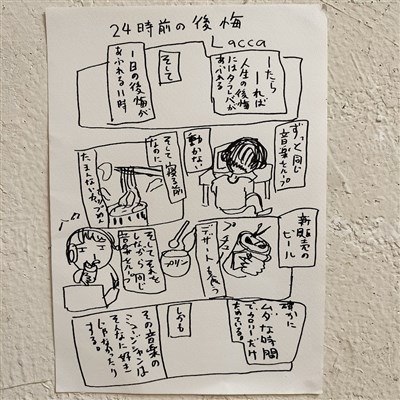 24時前の後悔
Lacca
ーたら
ーれば
人生の後悔
にはタラレバが
あふれる
そして
1日の後悔が
あふれる11時
ずっと同じ
音楽をループ
動かない
そして寝る前
なのに
たまんないカップめん
新発売の
ビール
デザートも食べつ
プリン
そしてそれを
しながら同じ
音楽をループ
確かに
ムダな時間
でカロリーだけ
ためている。
しかも
その音楽の
ミュージシャンは
そんなに好き
じゃなかったり
する。